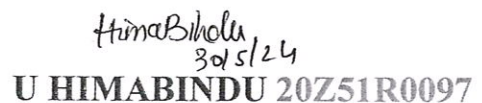 HimaBindu
30/5/24
U HIMABINDU 20Z51R0097